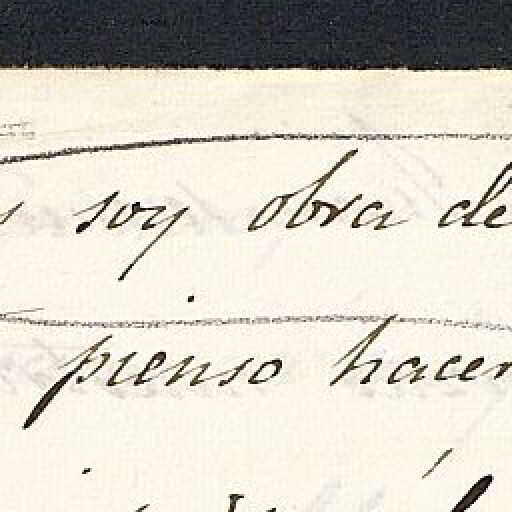 soy obra de
pienso hacer